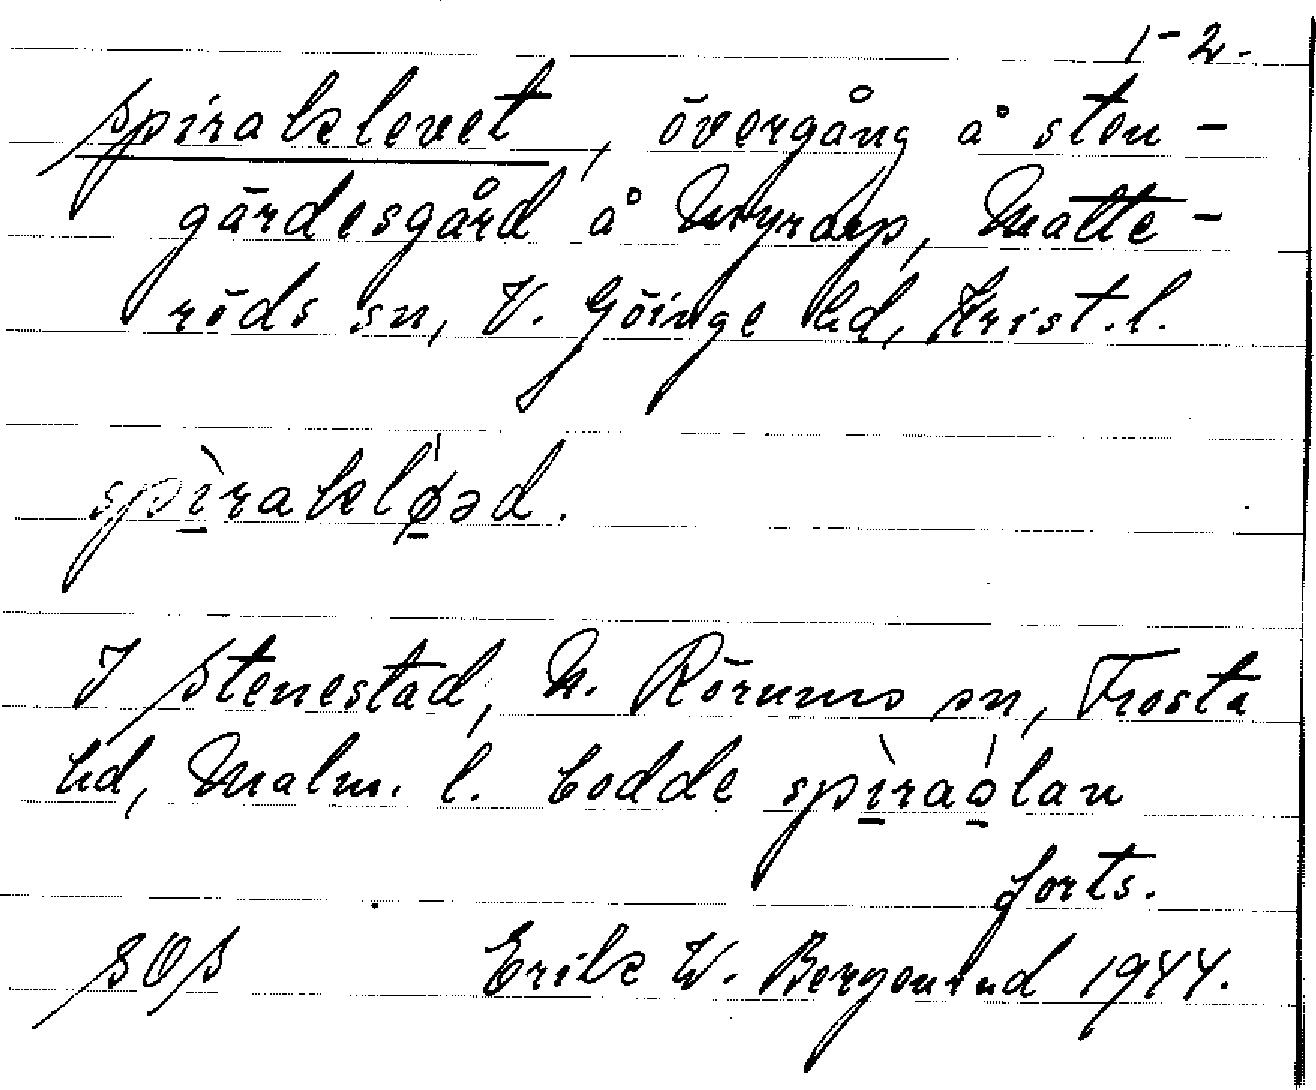 1-2.
Spiraklevet, övergång å sten-
gärdesgård å Myrarp, Matte-
röds sn, V. Göinge hd, Krist.l.
spìraklǿəd.
I Stenestad, N. Rörums sn, Frosta
hd, Malm. l. bodde spìraólan
forts.
SOS Erik W. Bergstrand 1944.